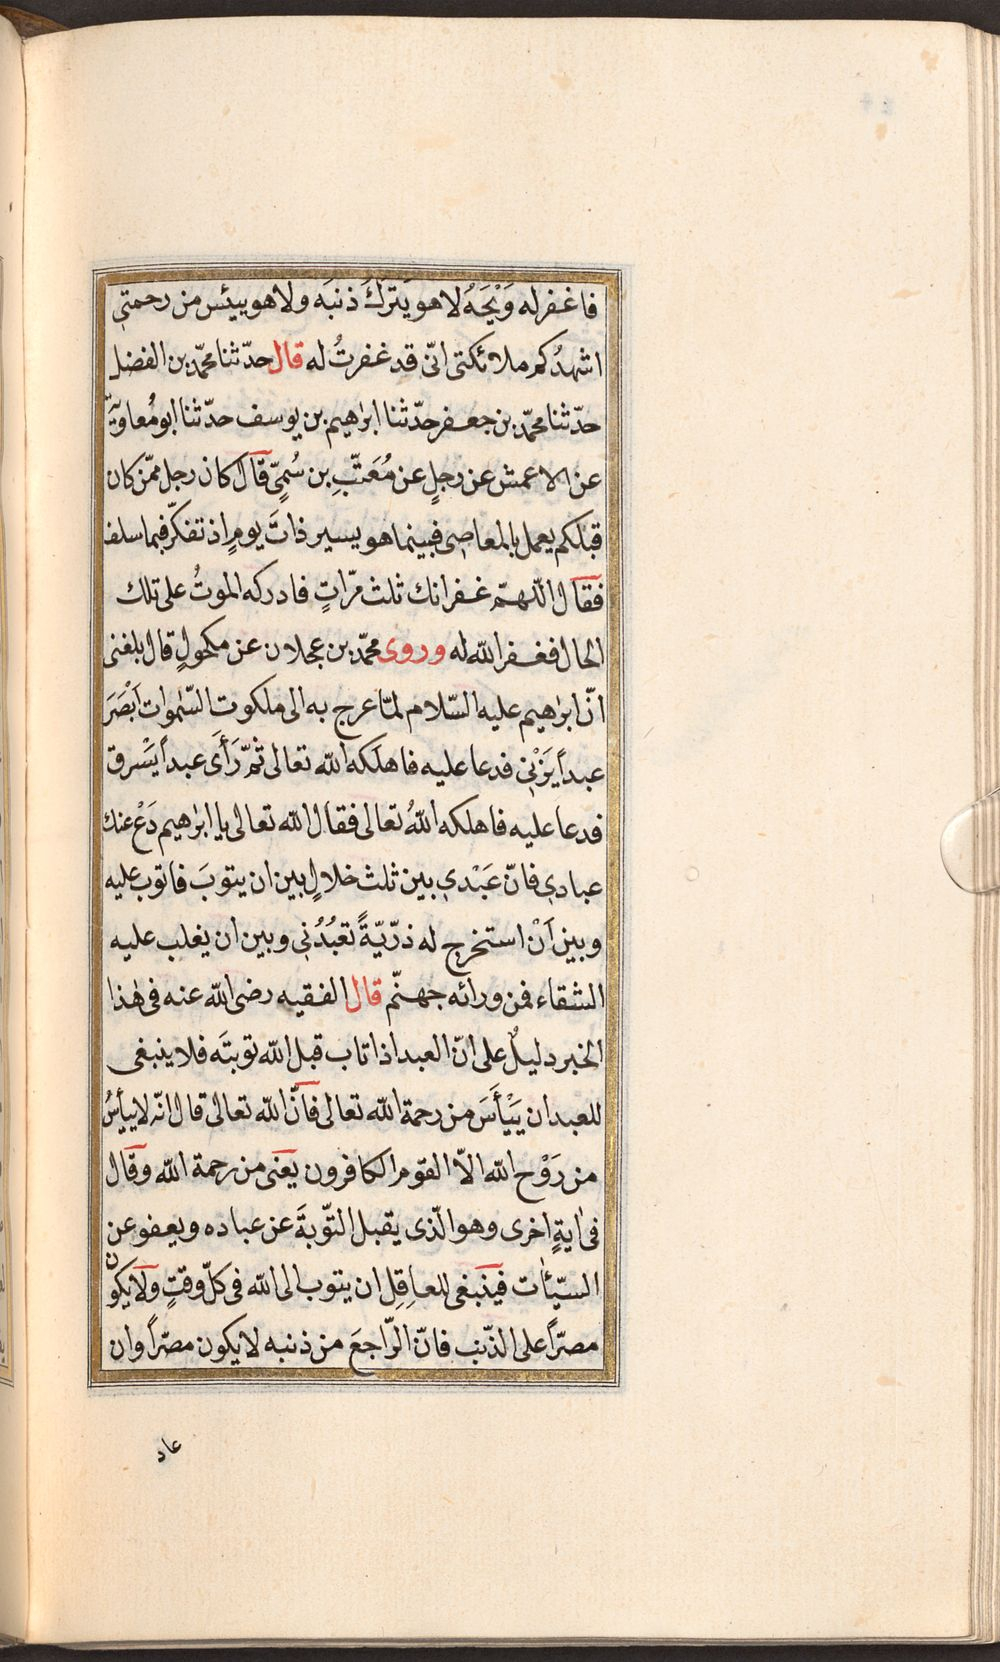 فاغفر له وَيْحَهُ لا هو يَتركَ ذنبَه ولا هو ييئس من رحمتي
اشهدُكم ملائكتى انّى قد غفرتُ له قال حدّثنا محمّد بن الفضل
حدّثنا محمّد بن جعفر حدّثنا ابرٰهيم بن يوسف حدّثنا ابو مُعاوية
عن الاعمش عن رجلٍ عن مُعَتّبِ بن سُمىّ قال كان رجل ممّن كان
قبلكم يعمل بالمعاصى فبينما هو يسير ذاتَ يومٍ اذ تفكّر فيما سلف
فقال اللّهمّ غفرانك ثلث مرّاتٍ فادركه الموتُ على تلك
الحال فغفر اللّه له وروى محمّد بن عجلان عن مكحولٍ قال بلغنى
انّ ابرٰهيم عليه السّلام لمّا عرج به الى ملكوت السّمٰوات اَبْصَرَ
عبداً يَزْنِى فدعا عليه فاهلكه اللّه تعالى ثمّ رَأَى عبداً يَسْرق
فدعا عليه فاهلكه اللّهُ تعالى فقال اللّه تعالى يا ابرٰهيم دَعْ عنك
عبادى فانّ عَبْدى بين ثلث خلالٍ بين ان يتوبَ فاتوب عليه
وبين اَنْ استخرج له ذرّيّةً تعْبُدُنى وبين ان يغلب عليه
الشقاء فمن ورائه جهنّم قال الفقيه رضى اللّه عنه فى هٰذا
الخبر دليلٌ على انّ العبد اذا تاب قبل اللّه توبتَه فلا ينبغى
للعبد ان يَيْأَسَ من رحمة اللّه تعالى فانّ اللّه تعالى قال انّه لا ييأسُ
من رَوْح اللّه الاّ القوم الكافرون يعنى من رحمة اللّه وقال
فى اٰيةٍ اخرى وهو الّذى يقبل التّوبةَ عن عباده ويعفو عن
السيّئات فينبغى للعاقِل ان يتوب الى اللّه فى كلّ وقتٍ ولا يكون
مصرّاً على الذّنب فانّ الرّاجعَ من ذنبه لا يكون مصرّاً وان
عاد